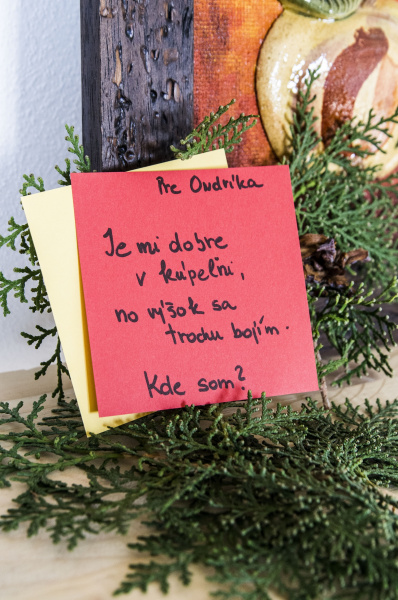 Pre Ondríka
Je mi dobre
v kúpeľni,
no výšok sa
trochu bojím.
Kde som?